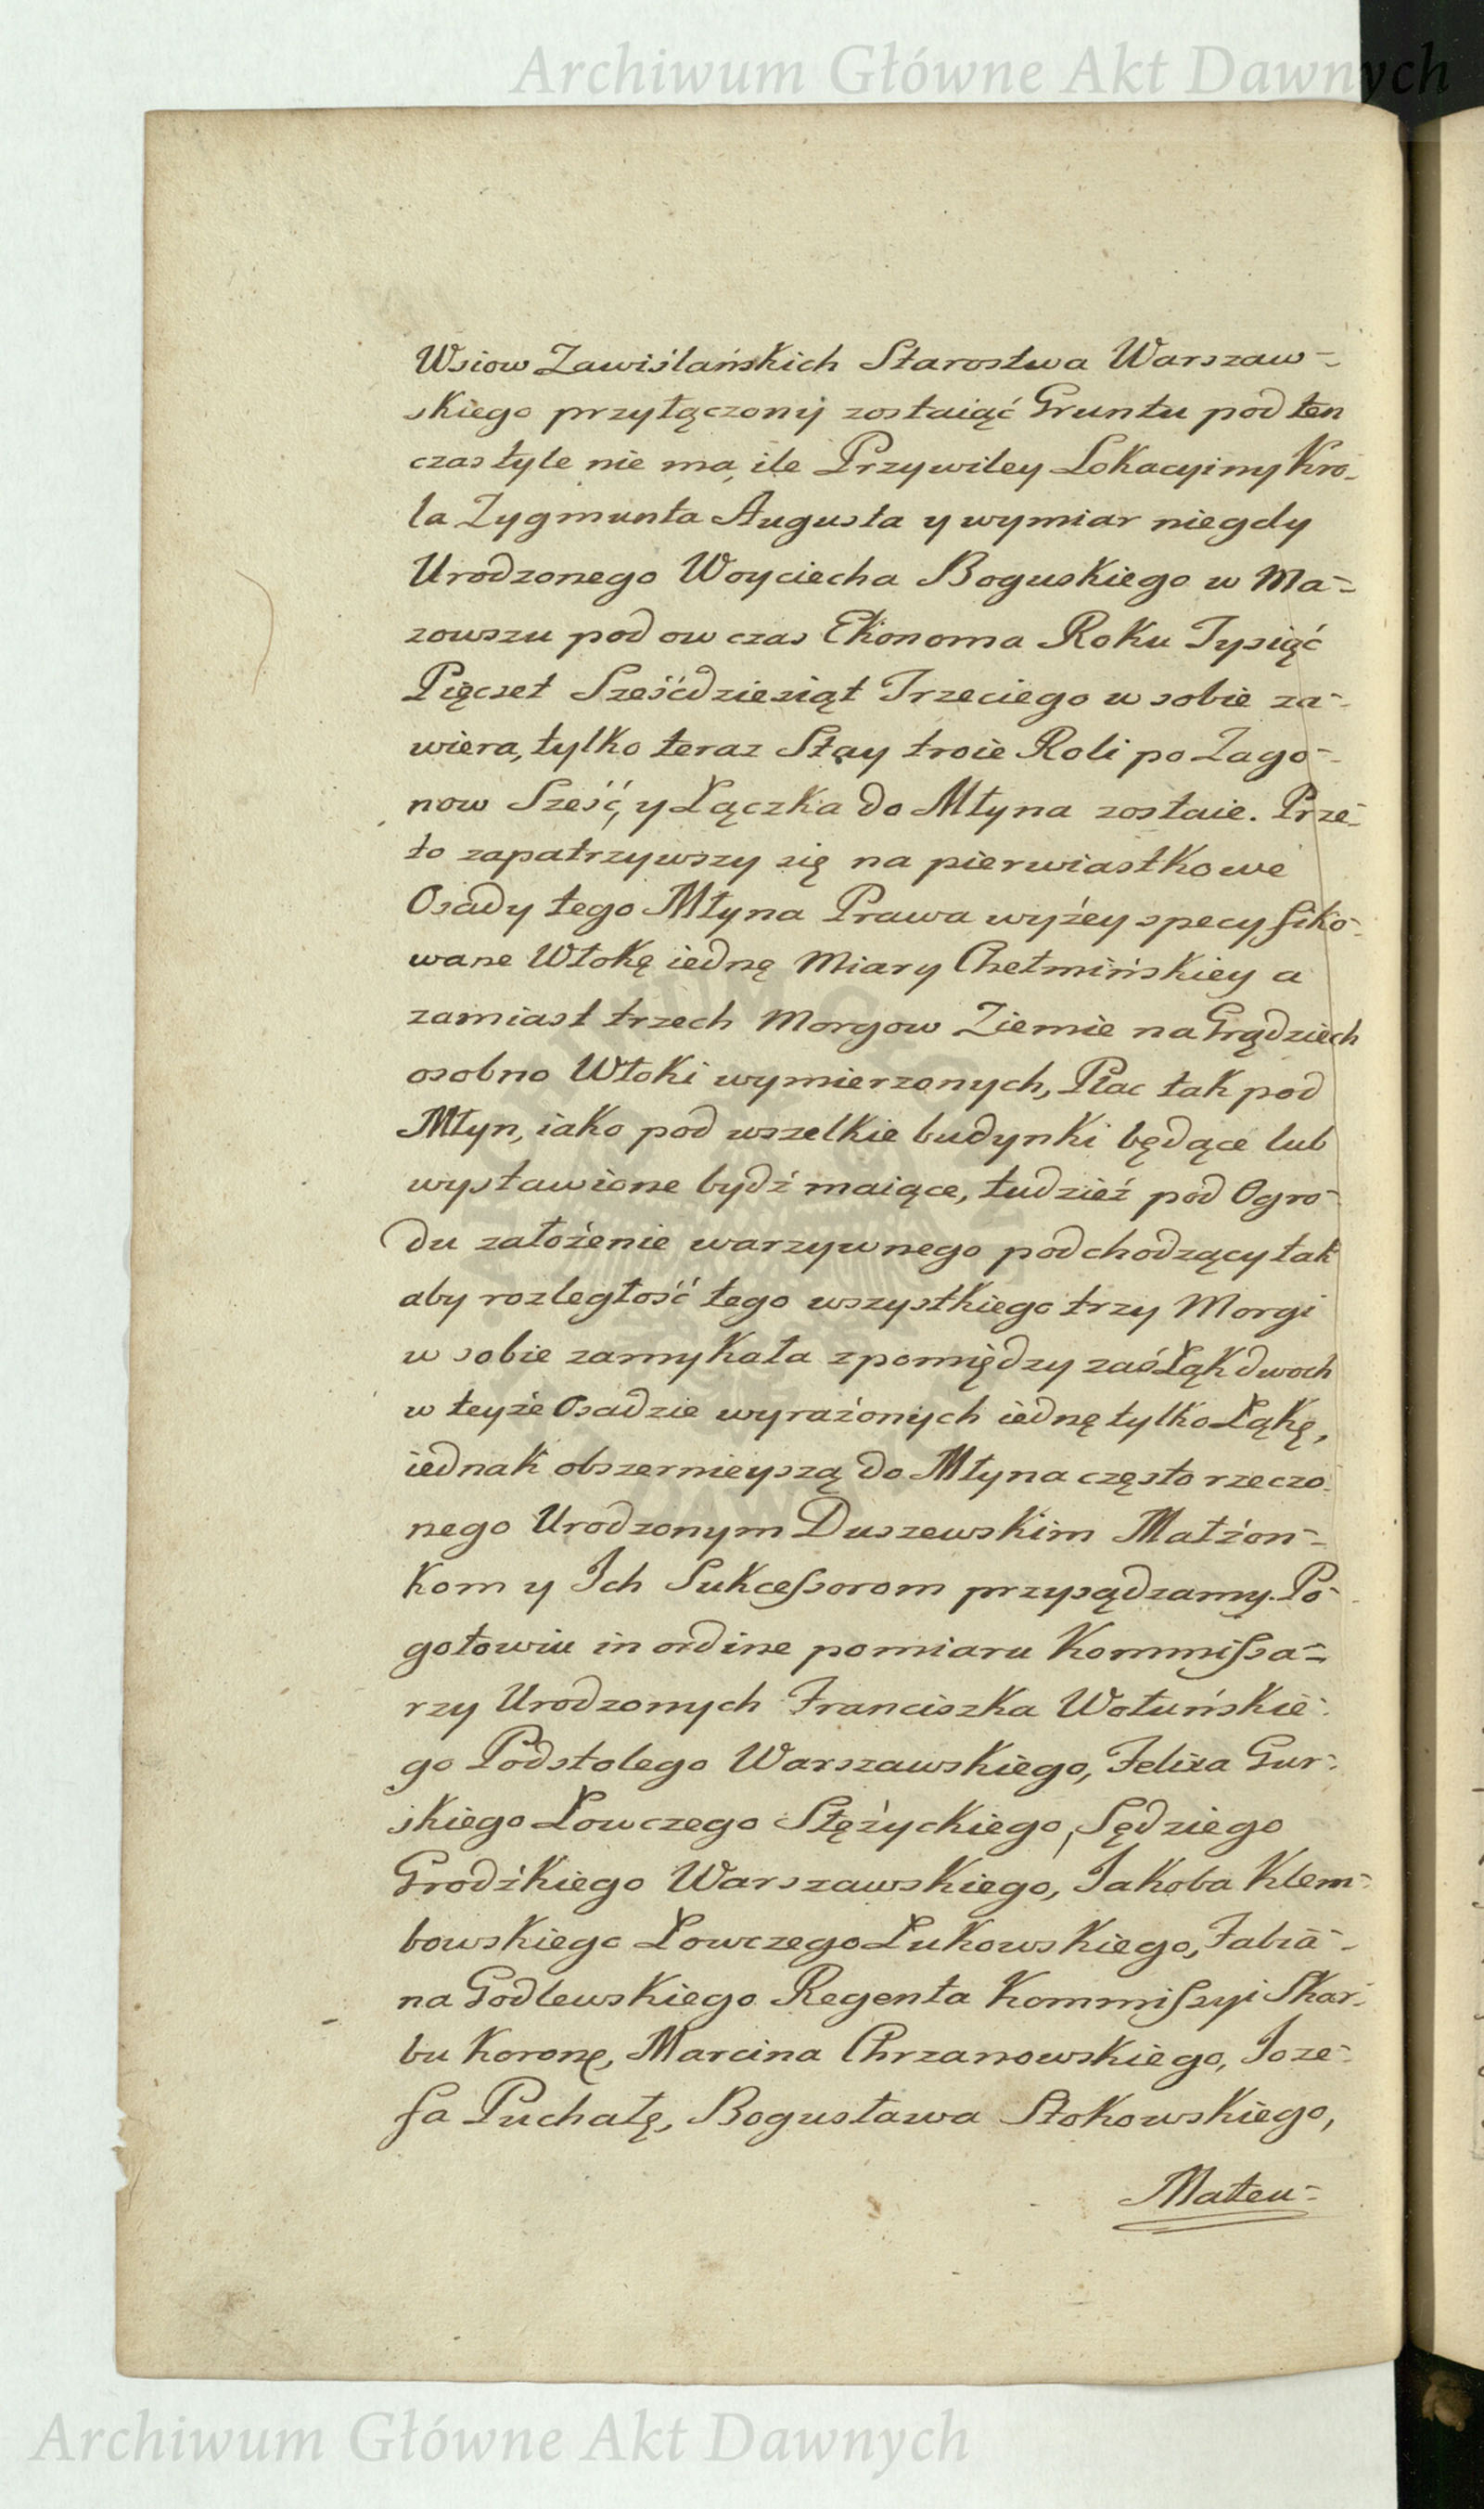 Archiwum Główne Akt Dawnych
Wsiow Zawiślańskich Starostwa Warszaw-
skiego przyłączony zostaiąć Gruntu pod ten
czas tyle nie ma, ile Przywiley Lokacyiny Kro-
la Zygmunta Augusta y wymiar niegdy
Urodzonego Woyciecha Boguskiego w Ma=
zowszu pod ow czas Ekonoma Roku Tysiąć
Pięcset Sześćdziesiąt Trzeciego w sobie za-
wiera, tylko teraz Stay troie Roli po Zago-
now Sześć, y Łączka do Młyna zostaie. Prze-
to zapatrzywszy się na pierwiastkowe
Osady tego Młyna Prawa wyżey specyfiko-
wane Włokę iednę Miary Chełmińskiey a
zamiast trzech Morgow Ziemie na Grądziech
osobno Włoki wymierzonych, Plac tak pod
Młyn, iako pod wszelkie budynki będące lub
wystawione bydź maiące, tudzież pod Ogro-
du założenie warzywnego podchodzący tak
aby rozległość tego wszystkiego trzy Morgi
w sobie zamykała zpomiędzy zaś Łąk dwoch
w teyże Osadzie wyrażonych iednę tylko Łąkę,
iednak obszernieyszą do Młyna często rzeczo-
nego Urodzonym Duszewskim Małżon-
kom y Ich Sukcessorom przysądzamy. Po-
gotowiu in ordine pomiaru Kommissa=
rzy Urodzonych Franciszka Wołuńskie-
go Podstolego Warszawskiego, Felixa Gur-
skiego Łowczego Stężyckiego, Sędziego
Grodźkiego Warszawskiego, Jakoba Klem-
bowskiego Łowczego Łukowskiego, Fabia-
na Godlewskiego Regenta Kommissyi Skar-
bu Koronę, Marcina Chrzanowskiego, Joze-
fa Puchałę, Bogusława Stokowskiego,
Mateu=
Archiwum Główne Akt Dawnych